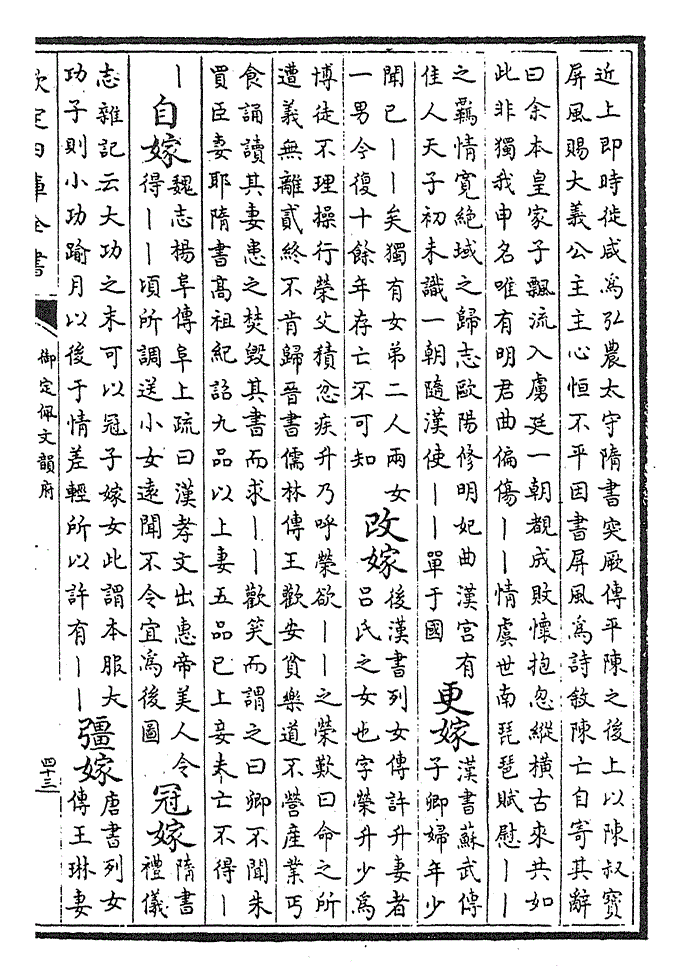 近上即時徙咸為弘農太守隋書突厥傳平陳之後上以陳叔寶
屏風賜大義公主主心恒不平因書屏風為詩敘陳亡自寄其辭
曰余本皇家子飄流入虜廷一朝覩成敗懷抱忽縱橫古來共如
此非獨我申名唯有明君曲偏傷丨丨情虞世南琵琶賦慰丨丨
之羈情寬絶域之歸志歐陽修明妃曲漢宮有
佳人天子初未識一朝隨漢使丨丨單于國
更嫁
漢書蘇武傳
子卿婦年少
聞已丨丨矣獨有女弟二人兩女
一男今復十餘年存亡不可知
改嫁
後漢書列女傳許升妻者
呂氏之女也字榮升少為
博徒不理操行榮父積忿疾升乃呼榮欲丨丨之榮歎曰命之所
遭義無離貳終不肯歸晉書儒林傳王歡安貧樂道不營産業丐
食誦讀其妻患之焚毀其書而求丨丨歡笑而謂之曰卿不聞朱
買臣妻耶隋書髙祖紀詔九品以上妻五品已上妾夫亡不得丨
丨
自嫁
魏志楊阜傳阜上疏曰漢孝文出惠帝美人令
得丨丨頃所調送小女遠聞不令宜為後圖
冠嫁
隋書
禮儀
志雜記云大功之末可以冠子嫁女此謂本服大
功子則小功踰月以後于情差輕所以許有丨丨
彊嫁
唐書列女
傳王琳妻
欽定四庫全書
御定佩文韻府
四十三